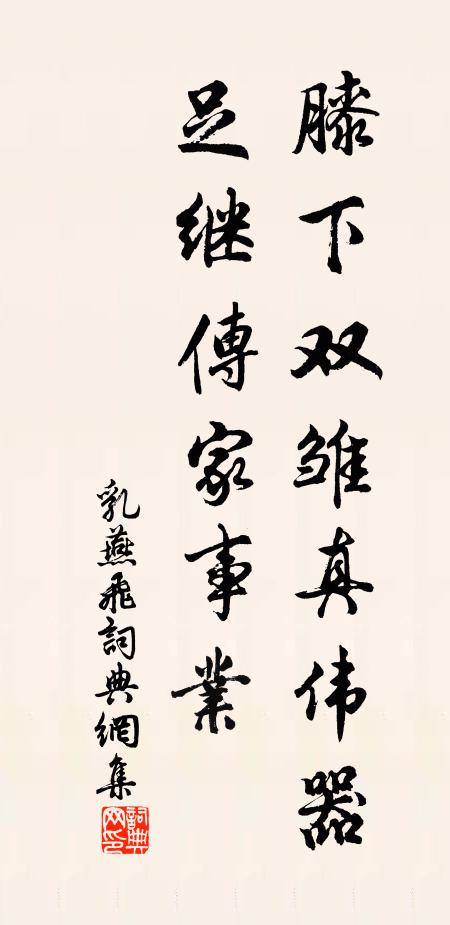 膝下双雏真伟器
足继傳家事業
乳燕飛詞典網集
詞典網印